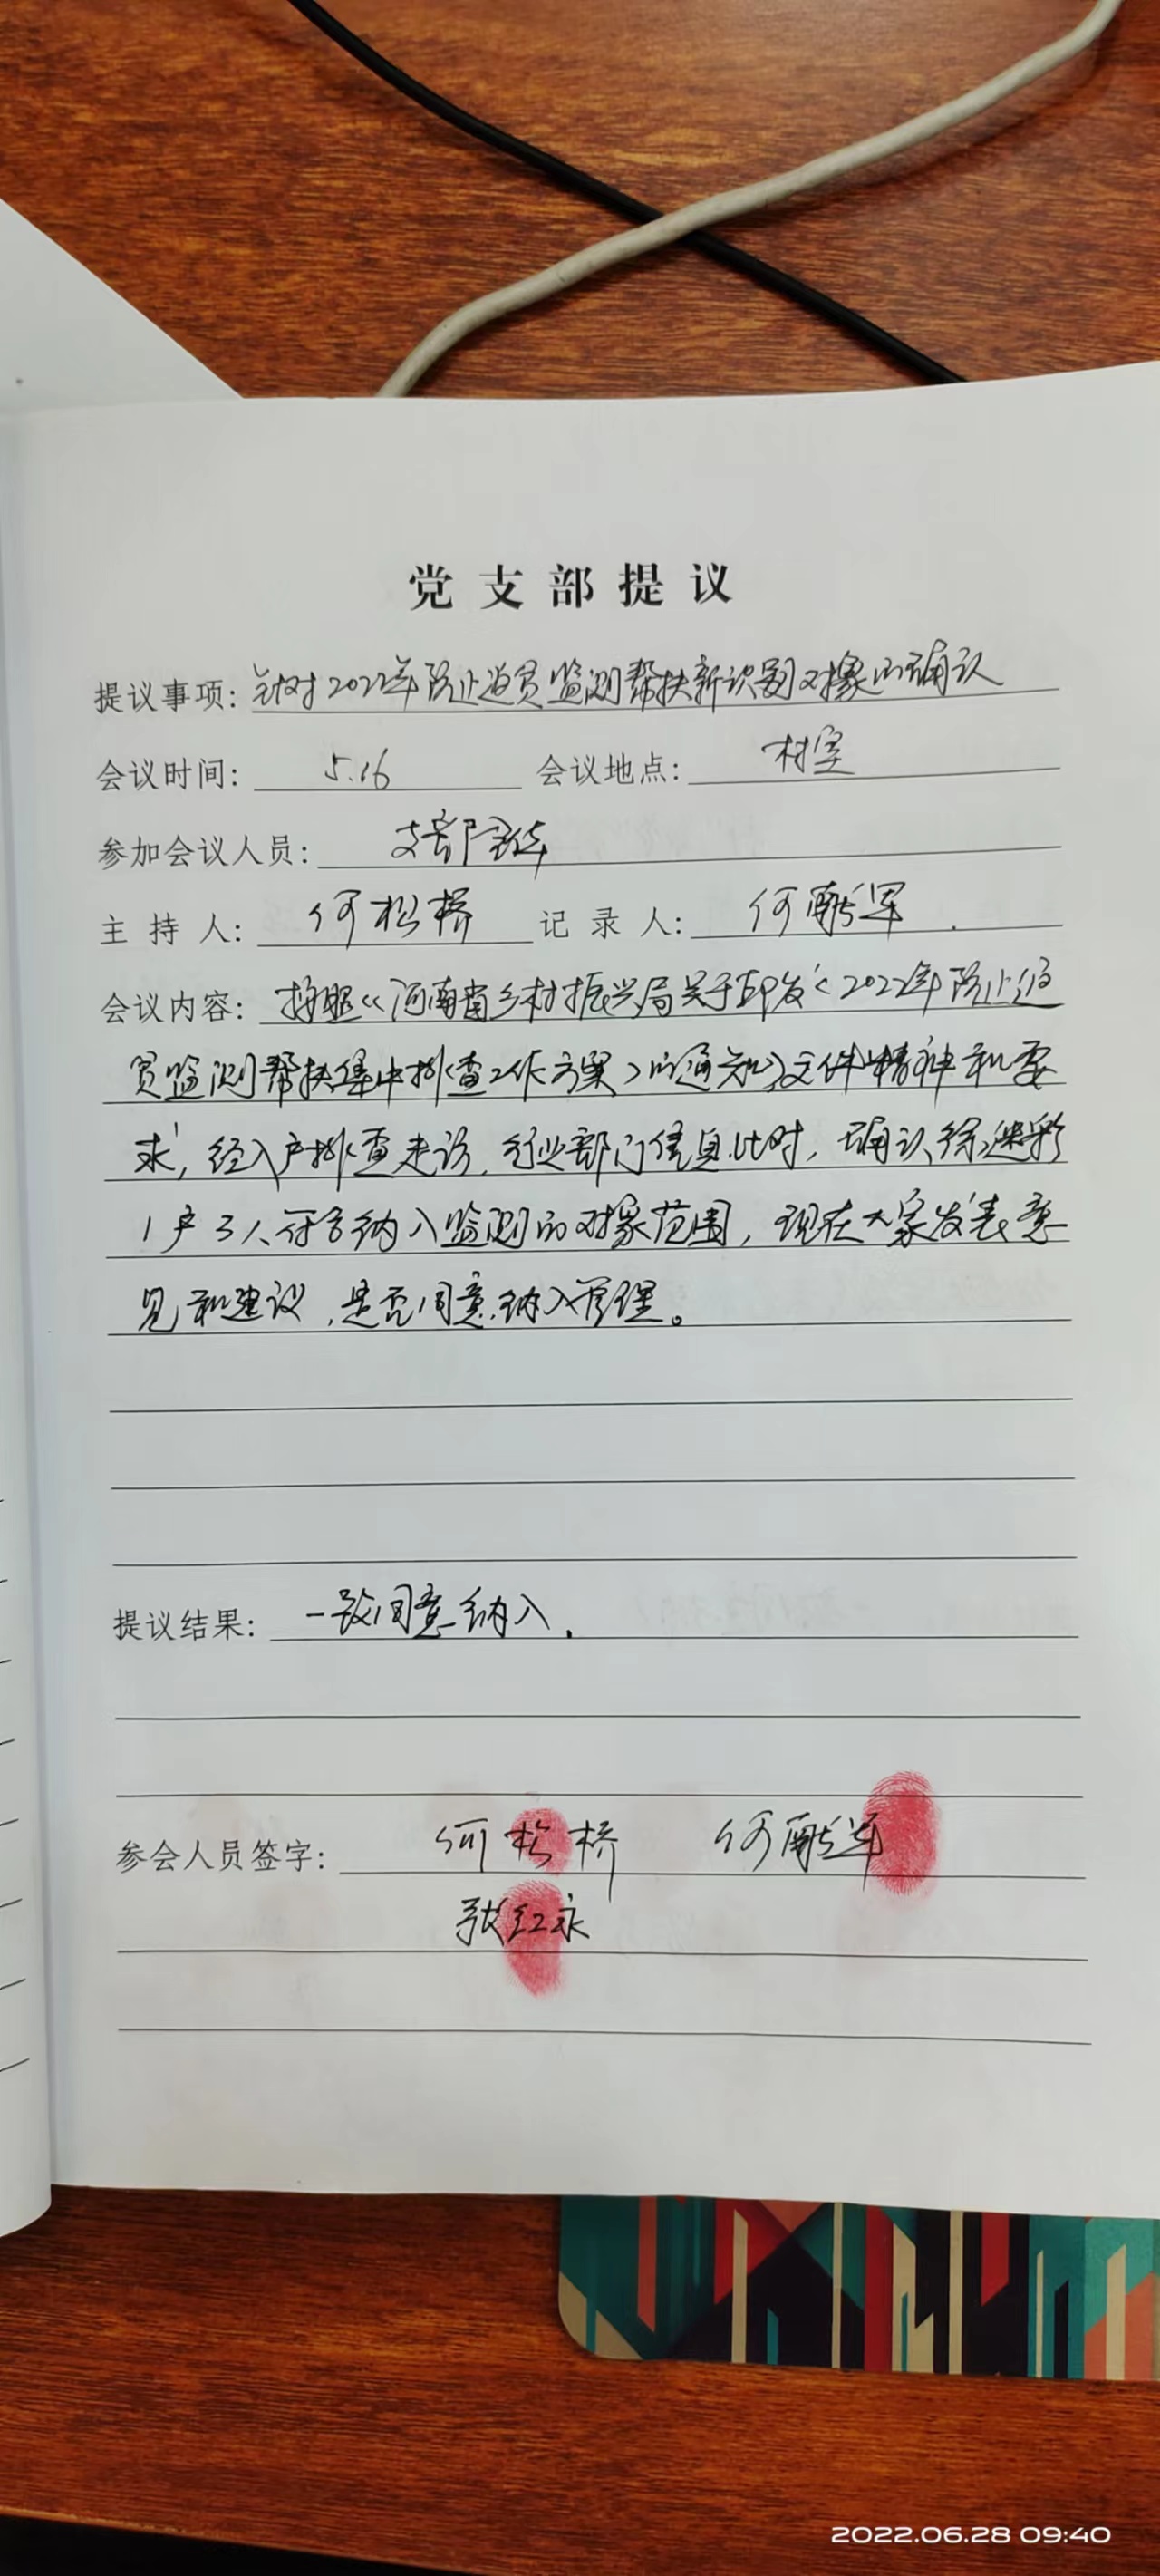 党支部提议
提议事项：针对2022年防止返贫监测帮扶新识别对象的确认
会议时间：5.16 会议地点：村室
参加会议人员：支部全体
主持人：何松桥 记录人：何献军.
会议内容：按照《河南省乡村振兴局关于印发〈2022年防止返
贫监测帮扶集中排查工作方案〉的通知》文件精神和要
求，经入户排查走访、行业部门信息比对，确认徐迷彩
1户3人符合纳入监测的对象范围，现在大家发表意
见和建议，是否同意纳入管理。
提议结果：一致同意纳入.
参会人员签字：何松桥 何献军
张红永
2022.06.28 09:40